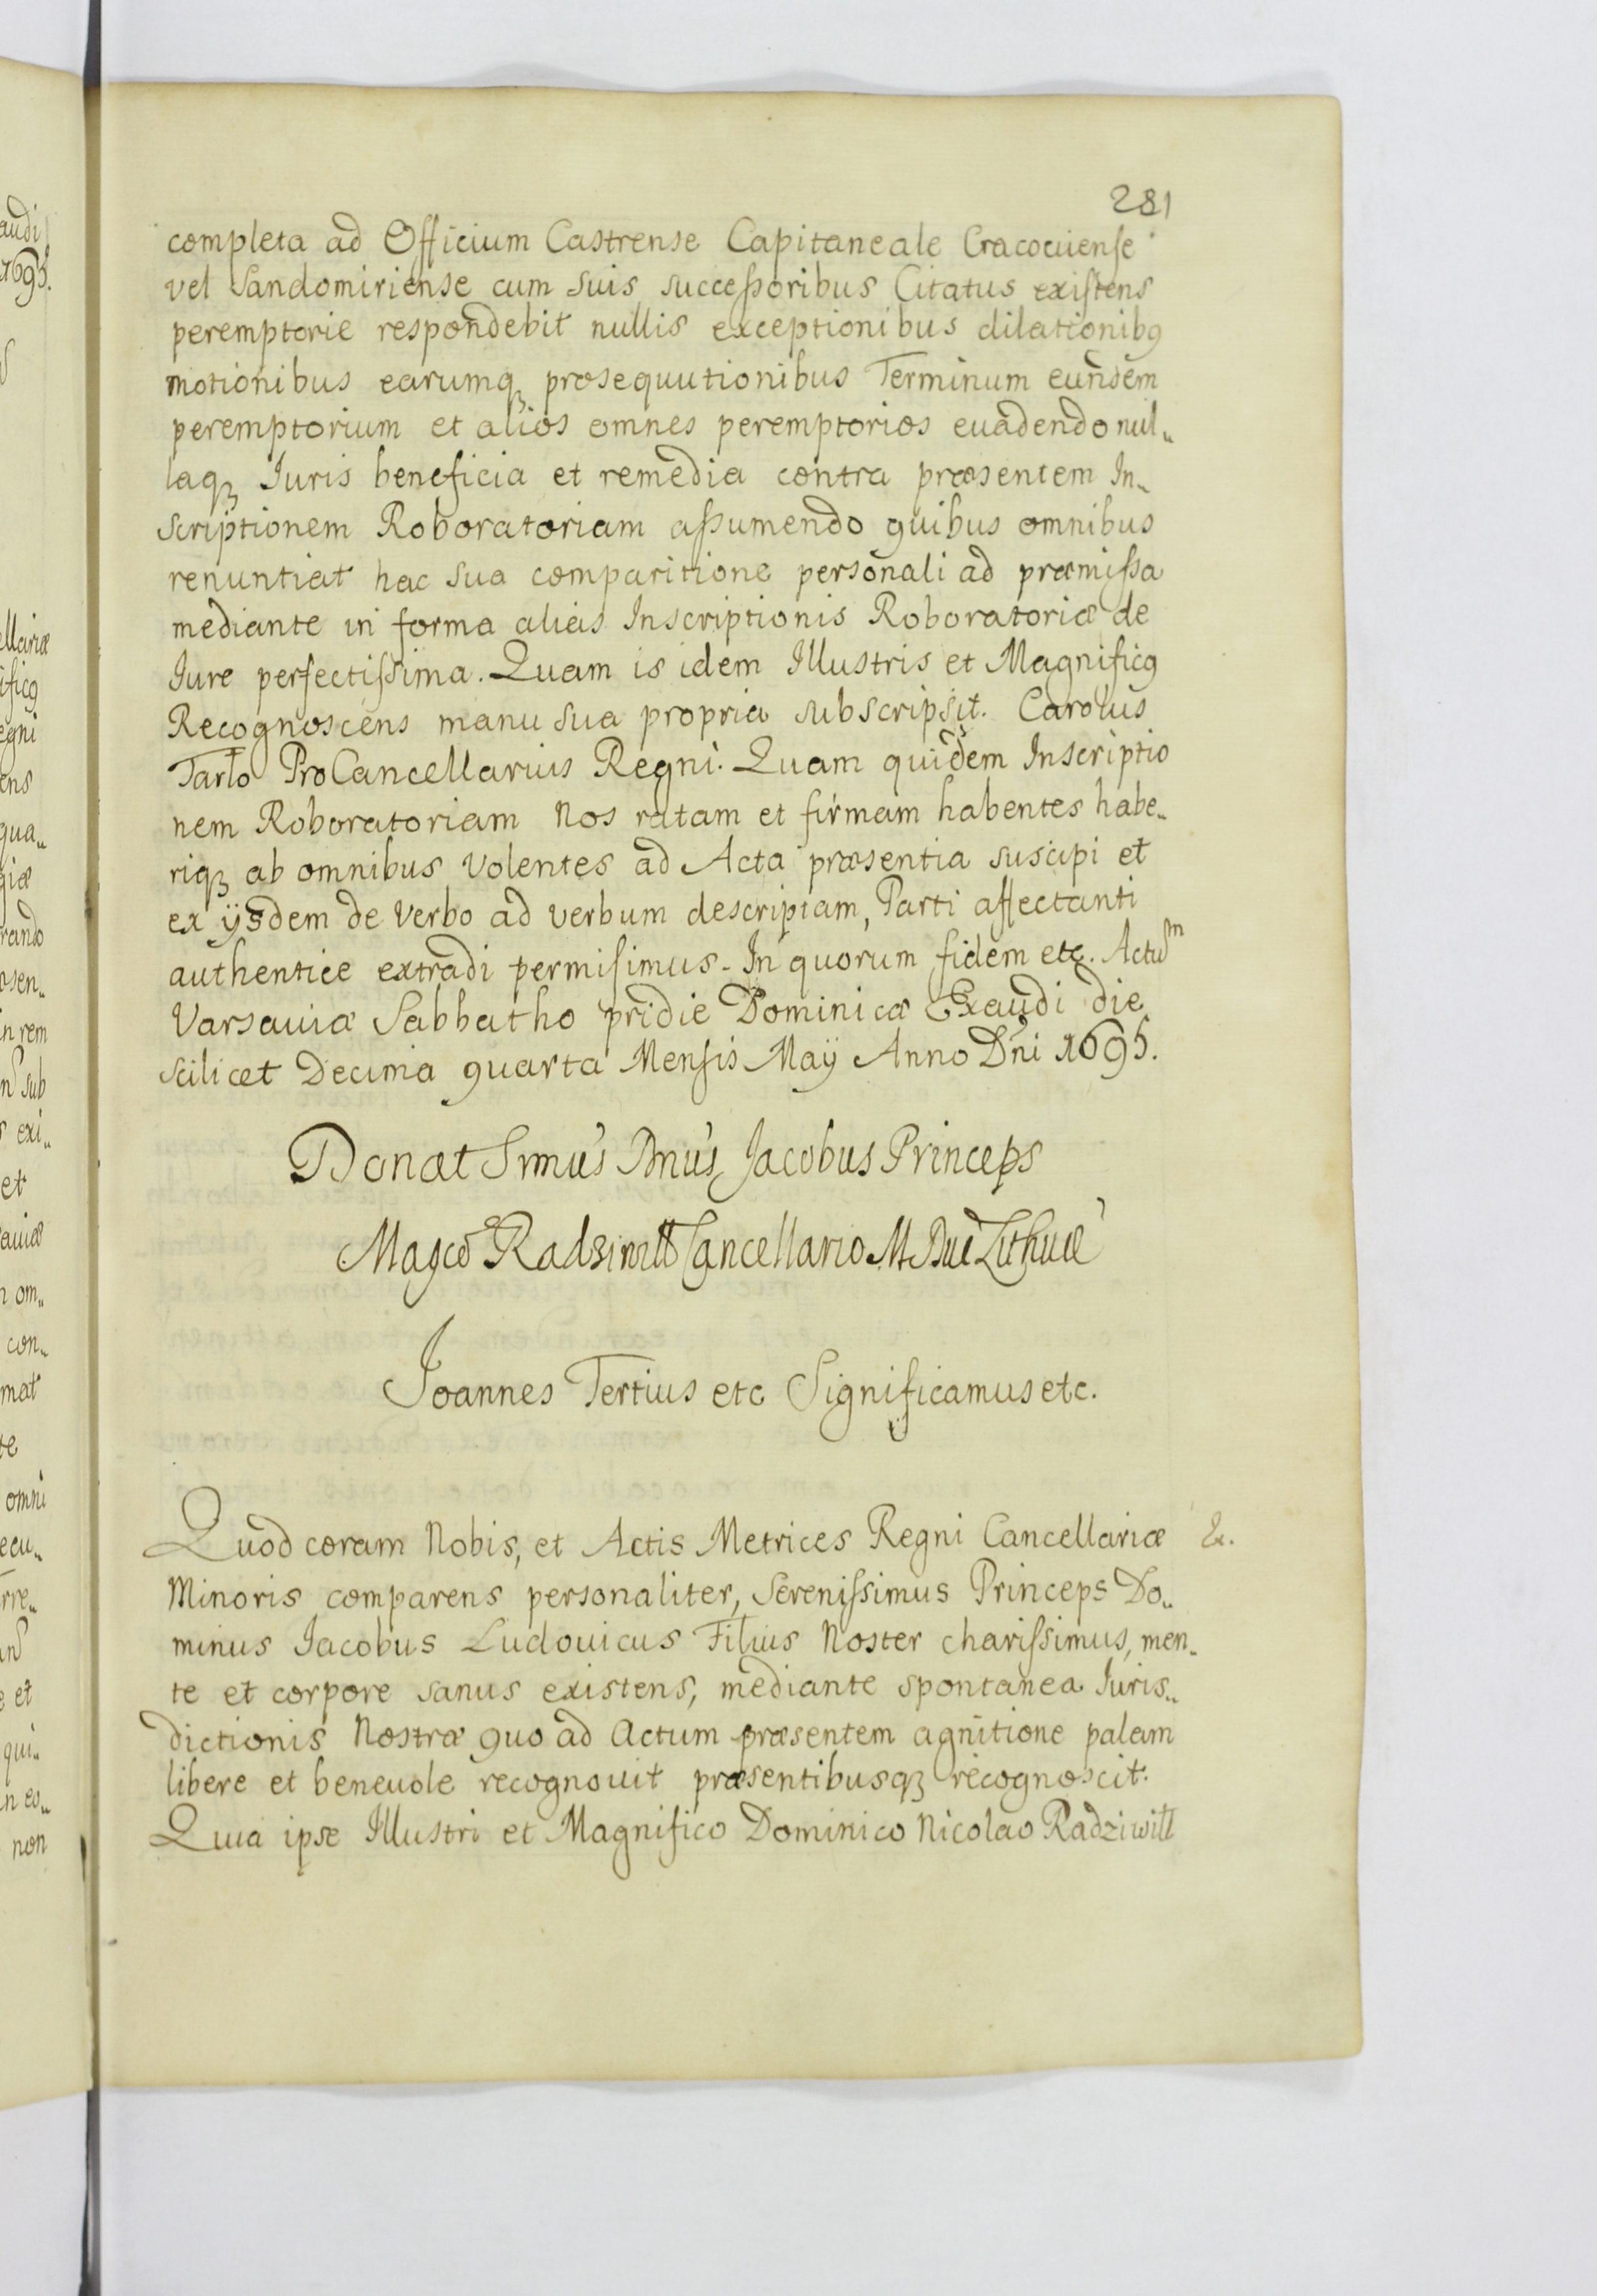 281
completa ad Officium Castrense Capitaneale Cracoviense
vel Sandomiriense cum suis successoribus Citatus existens
peremptorie respondebit nullis exceptionibus dilationibꝰ
motionibus earumqꝫ prosequutionibus Terminum eundem
peremptorium et alios omnes peremptorios euadendo nul„
laqꝫ Iuris beneficia et remedia contra præsentem In„
scriptionem Roboratoriam assumendo quibus omnibus
renuntiat hac sua comparitione personali ad præmissa
mediante in forma alias Inscriptionis Roboratoriæ de
Iure perfectissima. Quam is idem Illustris et Magnificꝰ
Recognoscens manu sua propria subscripsit. Carolus
Tarło ProCancellarius Regni. Quam quidem Inscriptio
nem Roboratoriam Nos ratam et firmam habentes habe„
riqꝫ ab omnibus Volentes ad Acta præsentia suscipi et
ex ijsdem de Verbo ad verbum descriptam, Parti affectanti
authentice extradi permisimus. In quorum fidem etc. Actum
Varsauiæ Sabbatho pridie Dominicæ Exaudi die
scilicet Decima quarta Mensis Maÿ Anno Dni 1695.
Donat Srmus Dnus Jacobus Princeps
Magco Radziwiłł Cancellario M. Duc Lithuæ
Joannes Tertius etc Significamus etc.
Quod coram Nobis, et Actis Metrices Regni Cancellariæ
Minoris comparens personaliter, Serenissimus Princeps Do„
minus Iacobus Ludouicus Filius Noster charissimus, men„
te et corpore sanus existens, mediante spontanea Iuris„
dictionis Nostræ quo ad Actum præsentem agnitione palam
libere et beneuole recognouit præsentibusqꝫ recognoscit.
Quia ipse Illustri et Magnifico Dominico Nicolao Radziwiłł